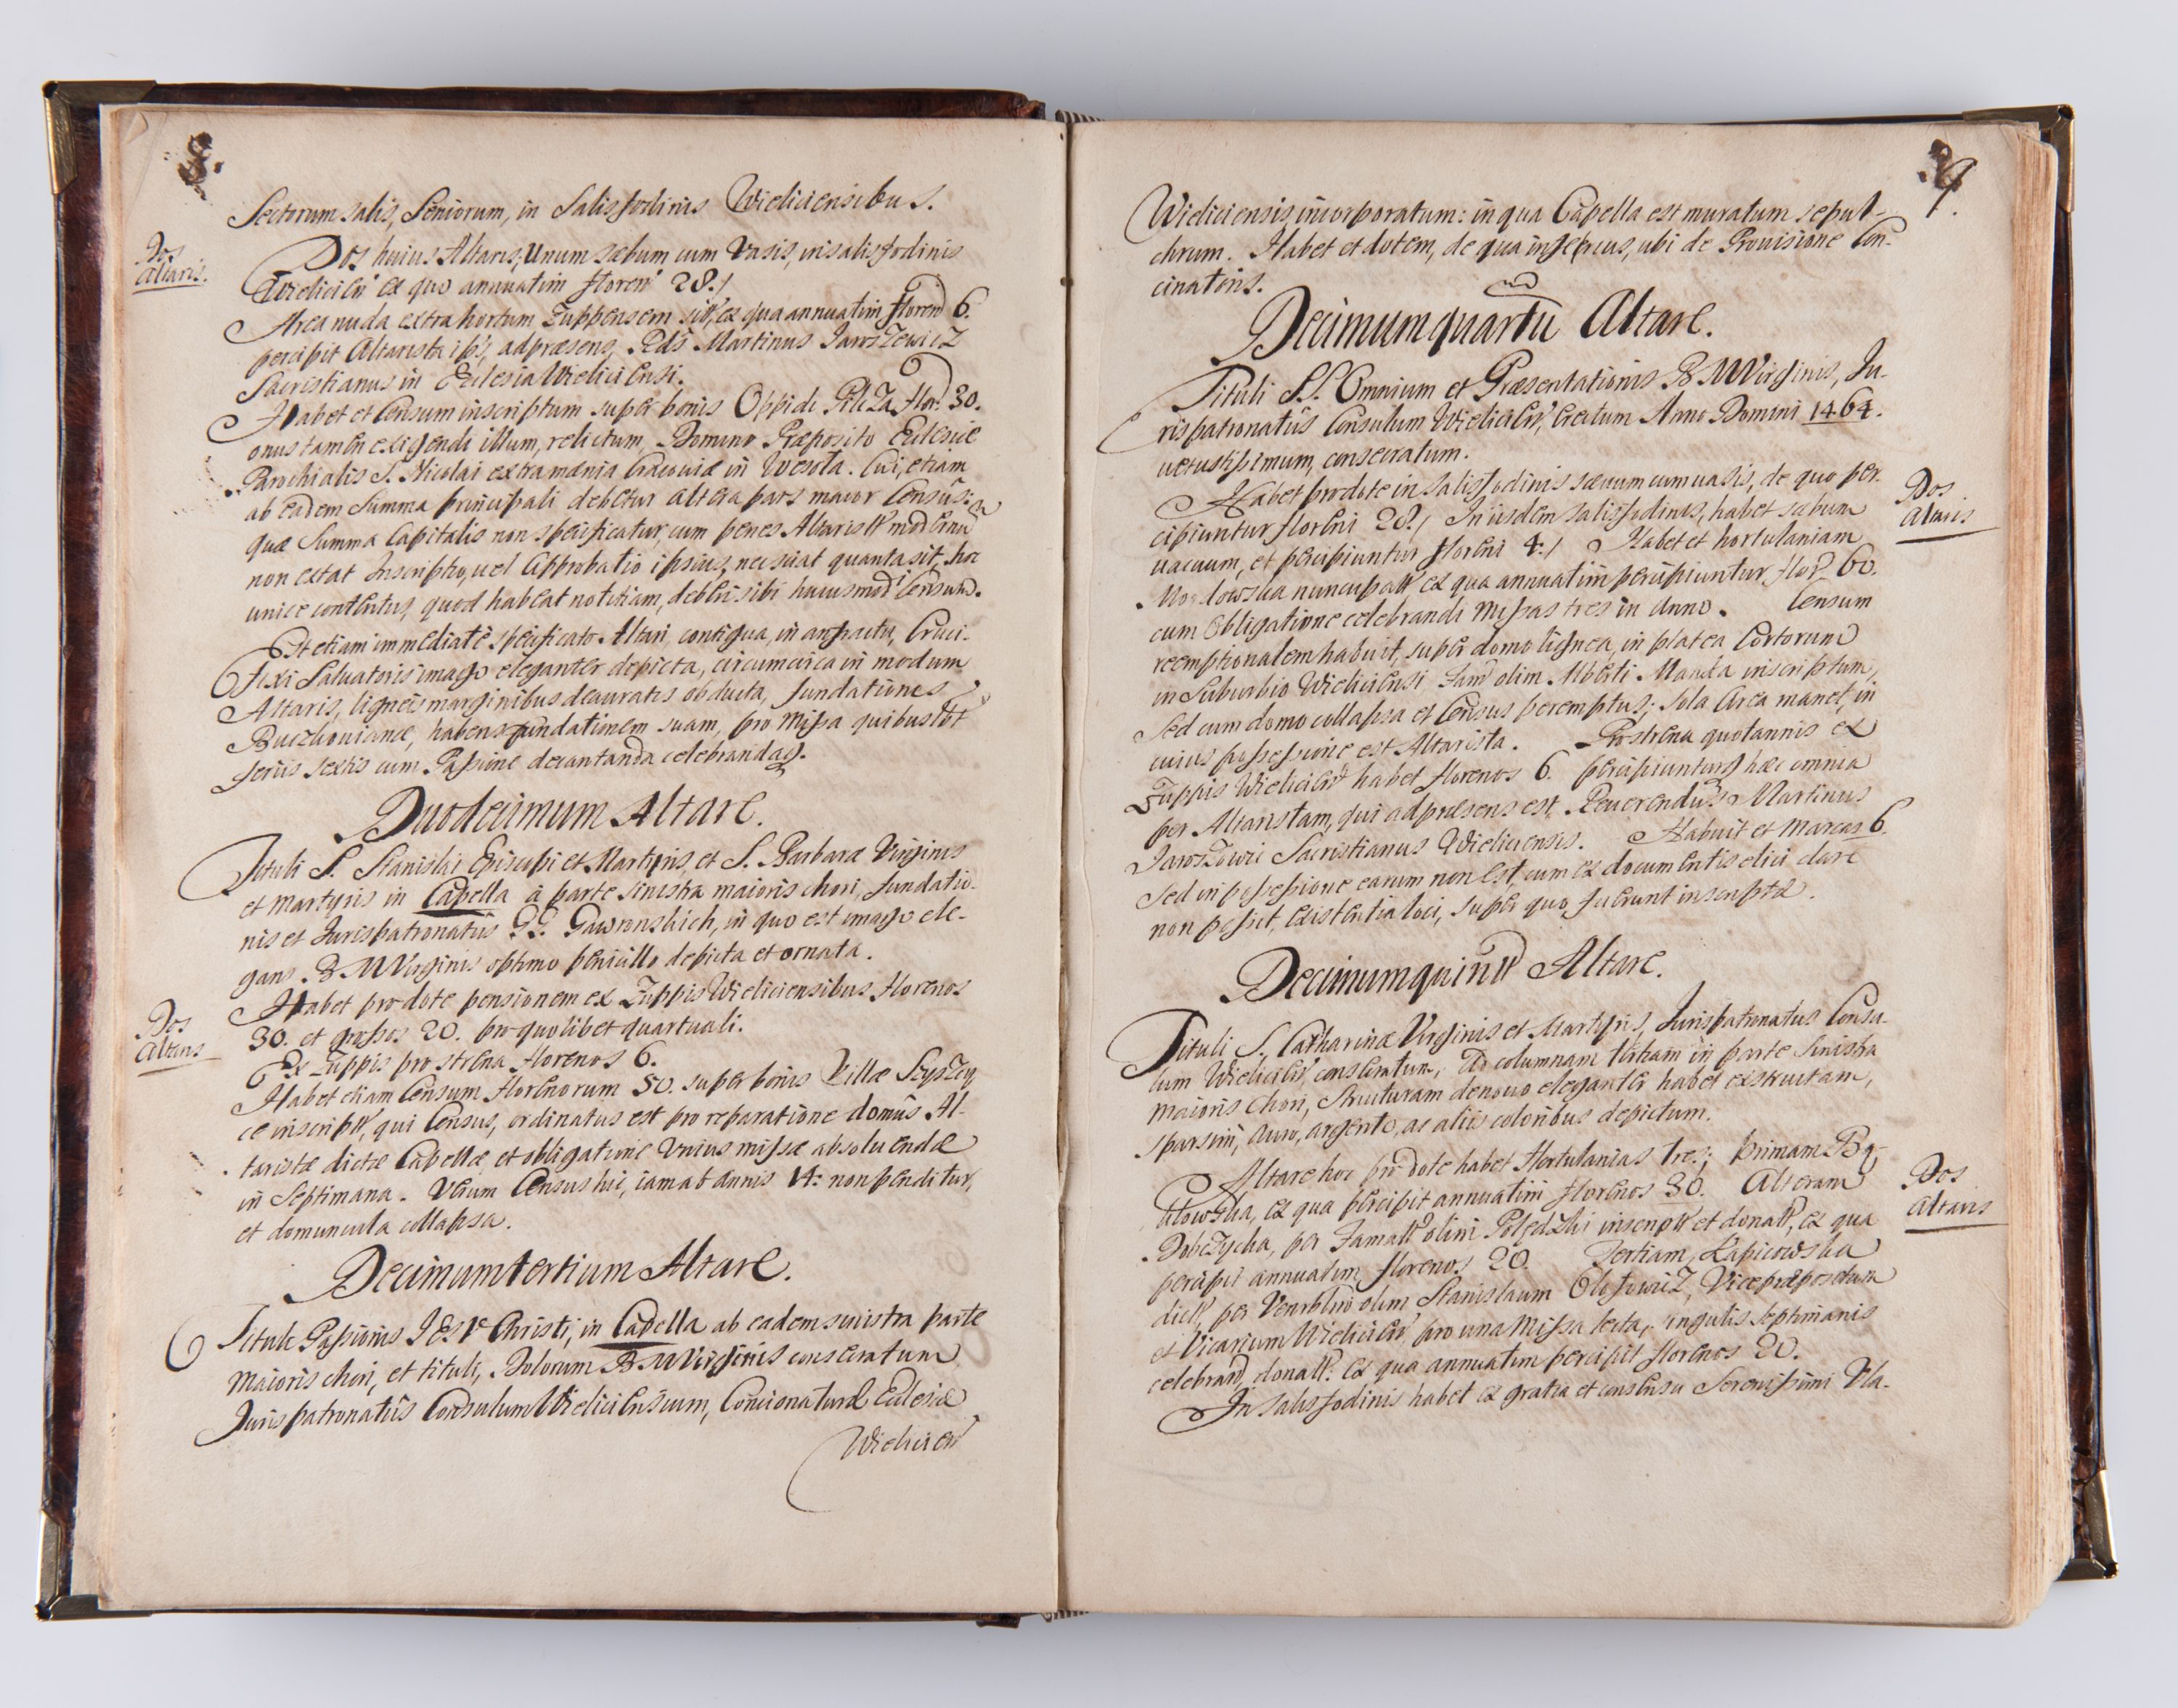 8.
Sectorum salis, Seniorum, in Salisfodinis Wieliciensibus.
Dos
Altaris.
Dos huius Altaris, Unum sæbum cum Vasis, in salisfodinis
Wielicien̄ ex quo annuatim floren̄ 28./
Area nuda extra hortum Zuppensem sit̄, ex qua annuatim floren̄ 6.
percipit Altarista ips̄, ad præsens, Rds̄ Martinus Jaroszewicz
Sacristianus in Ecclesia Wieliciensi.
Habet et Censum inscriptum super bonis Oppidi Pilcza flor: 30.
onus tamen exigendi illum, relictum, Domino Præposito Ecclesiæ
Parochialis S. Nicolai extra mænia Cracouiæ in Wesoła. Cui, etiam
ab eadem Summa principali debetur altera pars maior Censûs:
quæ Summa Capitalis non specificatur, cum penes Altarist̄ modernū
non extat Inscriptio, uel Approbatio ipsius, nec sciat quanta sit, hoc
unice contentus, quod habeat notitiam, deberi sibi huiusmodi Censum.
Est etiam immediatè specificato Altari, contigua, in anfractu, Cruci-
fixi Saluatoris imago eleganter depicta, circumcirca in modum
Altaris, ligneis marginibus deauratis obducta, fundationis
Buczkouianæ, habens fundationem suam, pro Missa quibuslibet
ferijs sextis cum Passione decantanda celebrandas.
Duodecimum Altare.
Tituli S. Stanislai Episcopi et Martyris, et S. Barbaræ Virginis
et Martyris in Capella à parte sinistra maioris chori, fundatio-
nis et Jurispatronatûs GG. Gawronskich, in quo est imago ele-
gans B M Virginis optimo penicillo depicta et ornata.
Dos
Altaris
Habet pro dote pensionem ex Zuppis Wieliciensibus florenos
30. et grossos 20. pro quolibet quartuali.
Ex Zuppis pro strena florenos 6.
Habet etiam Censum florenorum 50. super bonis Villæ Szyszcy
ce inscript̄, qui Census, ordinatus est pro reparatione domûs Al-
taristæ dictæ Capellæ, et obligatione Vnius missæ absoluendæ
in Septimana. Verum Census hic, iam ab annis 14: non penditur,
et domuncula collapsa.
Decimumtertium Altare.
Tituli Passionis IESV Christi, in Capella ab eadem sinistra parte
maioris chori, et tituli, Dolorum B M Virginis consecratum
Jurispatronatûs Consulum Wieliciensium, Concionaturæ Ecclesiæ
Wielicien̄
9.
Wieliciensis incorporatum: in qua Capella est muratum sepul-
chrum. Habet et dotem, de qua inferius, ubi de Prouisione Con-
cinatoris.
Decimumquartū Altare.
Tituli SS. Omnium et Præsentationis B M Virginis, Ju-
rispatronatûs Consulum Wielicien̄, erectum Anno Domini 1464.
uetustissimum, consecratum.
Dos
Altaris
Habet pro dote in Salisfodinis sæuum cum uasis, de quo per-
cipiuntur floreni 28./ In iisdem salisfodinis, habet sæbum
uacuum, et percipiuntur floreni 4:/ Habet et hortulaniam
nuncupat̄ ex qua annuatim percipiuntur flor 60.
cum Obligatione celebrandi Missas tres in Anno. Censum
reemptionalem habuit, super domo lignea, in platea Cortorum
in Suburbio Wieliciensi Fam̄ olim Alberti Manda inscriptum,
Sed cum domo collapsa et Census peremptus; sola Area manet, in
cuius possessione est Altarista. Prostrena quotannis ex
Zuppis Wielicien̄ habet florenos 6. percipiuntur haec omnia
per Altaristam, qui ad præsens est, Reuerendus Martinus
Jaroszowic Sacristianus Wieliciensis. Habuit et Marcas 6.
Sed in possessione earum non est, cum ex documentis elici clarè
non possit, existentia loci, super quo fuerunt inscriptæ.
Decimumquint̄ Altare.
Tituli S. Catharinæ Virginis et Martyris, Jurispatronatus Consu-
lum Wielicien̄, consecratum, ad columnam tertiam in parte sinistra
maioris chori, Structuram denouo eleganter habet exstructam,
sparsim, auro, argento, ac aliis coloribus depictum.
Dos
Altaris
Altare hoc pro dote habet Hortulanias tres; primam
ex qua percipit annuatim florenos 30. Alteram
Dobczycka, per Famat̄ olim inscript̄ et donat̄, ex qua
percipit annuatim florenos 20. Tertiam, Kapicowska
dict̄, per Venrblm̄ olim Stanislaum Vicepræpositum
et Vicarium Wielicien̄, pro una Missa lecta, singulis septimanis
celebrand̄, donat̄: ex qua annuatim percipit florenos 20.
In Salisfodinis habet ex gratia et consensu Serenissimi Vla-